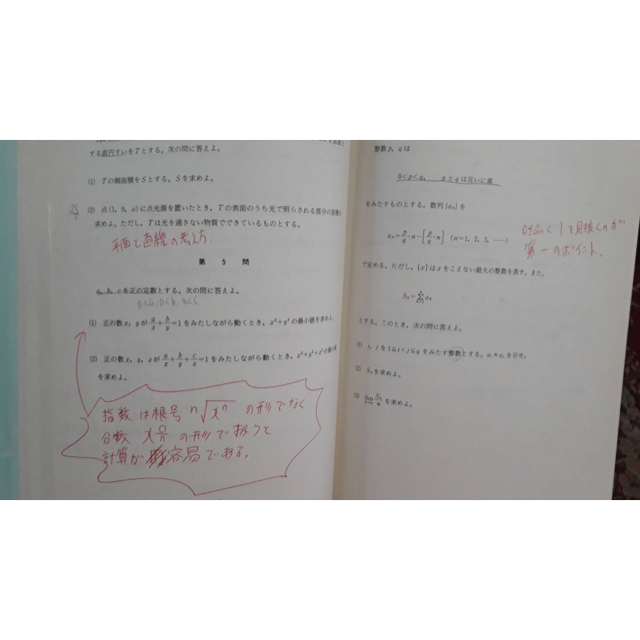 する直円すいをTとする。次の問に答えよ。
(1) Tの側面積をSとする。Sを求めよ。
(2) 点(1, 0, a)に点光源を置いたとき、Tの表面のうち光で照らされる部分の面積を
求めよ。ただし、Tは光を通さない物質でできているものとする。
平面と直線の考え方.
第 5 問
a, b, cを正の定数とする。次の問に答えよ。
(1) 正の数x, yが a/x + b/y = 1 をみたしながら動くとき、 の最小値を求めよ。
(2) 正の数x, y, zが a/x + b/y + c/z = 1 をみたしながら動くとき、
を求めよ。
指数は根号 ⁿ√ の形でなく
分数 の形で
計算が 容易である。
整数p, qは
0<p<q, pとqは互いに素
をみたすものとする。数列{aₙ}を
aₙ = p/q · n − [p/q · n] (n=1, 2, 3, ……)
0≦aₙ<1を見抜くのが
第一のポイント.
で定める。ただし、[x]はxをこえない最大の整数を表す。また、
とする。このとき、次の問に答えよ。
(1) i, jを1≦i<j≦qをみたす整数とする。 を示せ。
(2) を求めよ。
(3) lim Sₙ/n を求めよ。